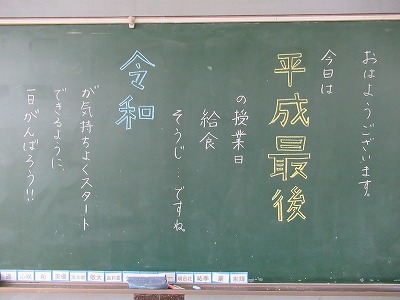 おはようございます。
今日は
平成最後
の授業日
給食
そうじ…ですね。
令和
が気持ちよくスタート
できるように、
一日がんばろう!!